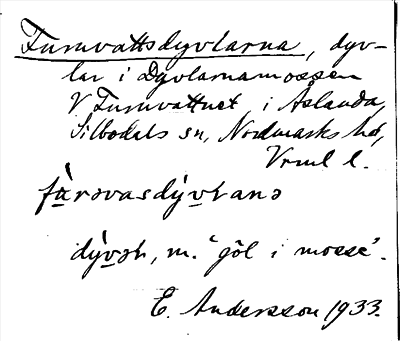 Furuvattsdyvlarna, dyv-
lar i Dyvlarnamossen
V Furuvattnet i Åslanda,
Silbodals sn, Nordmarks hd,
Vrml l.
fùrəvasdývlanə
dývəl, m. "göl i mosse".
E. Andersson 1933.